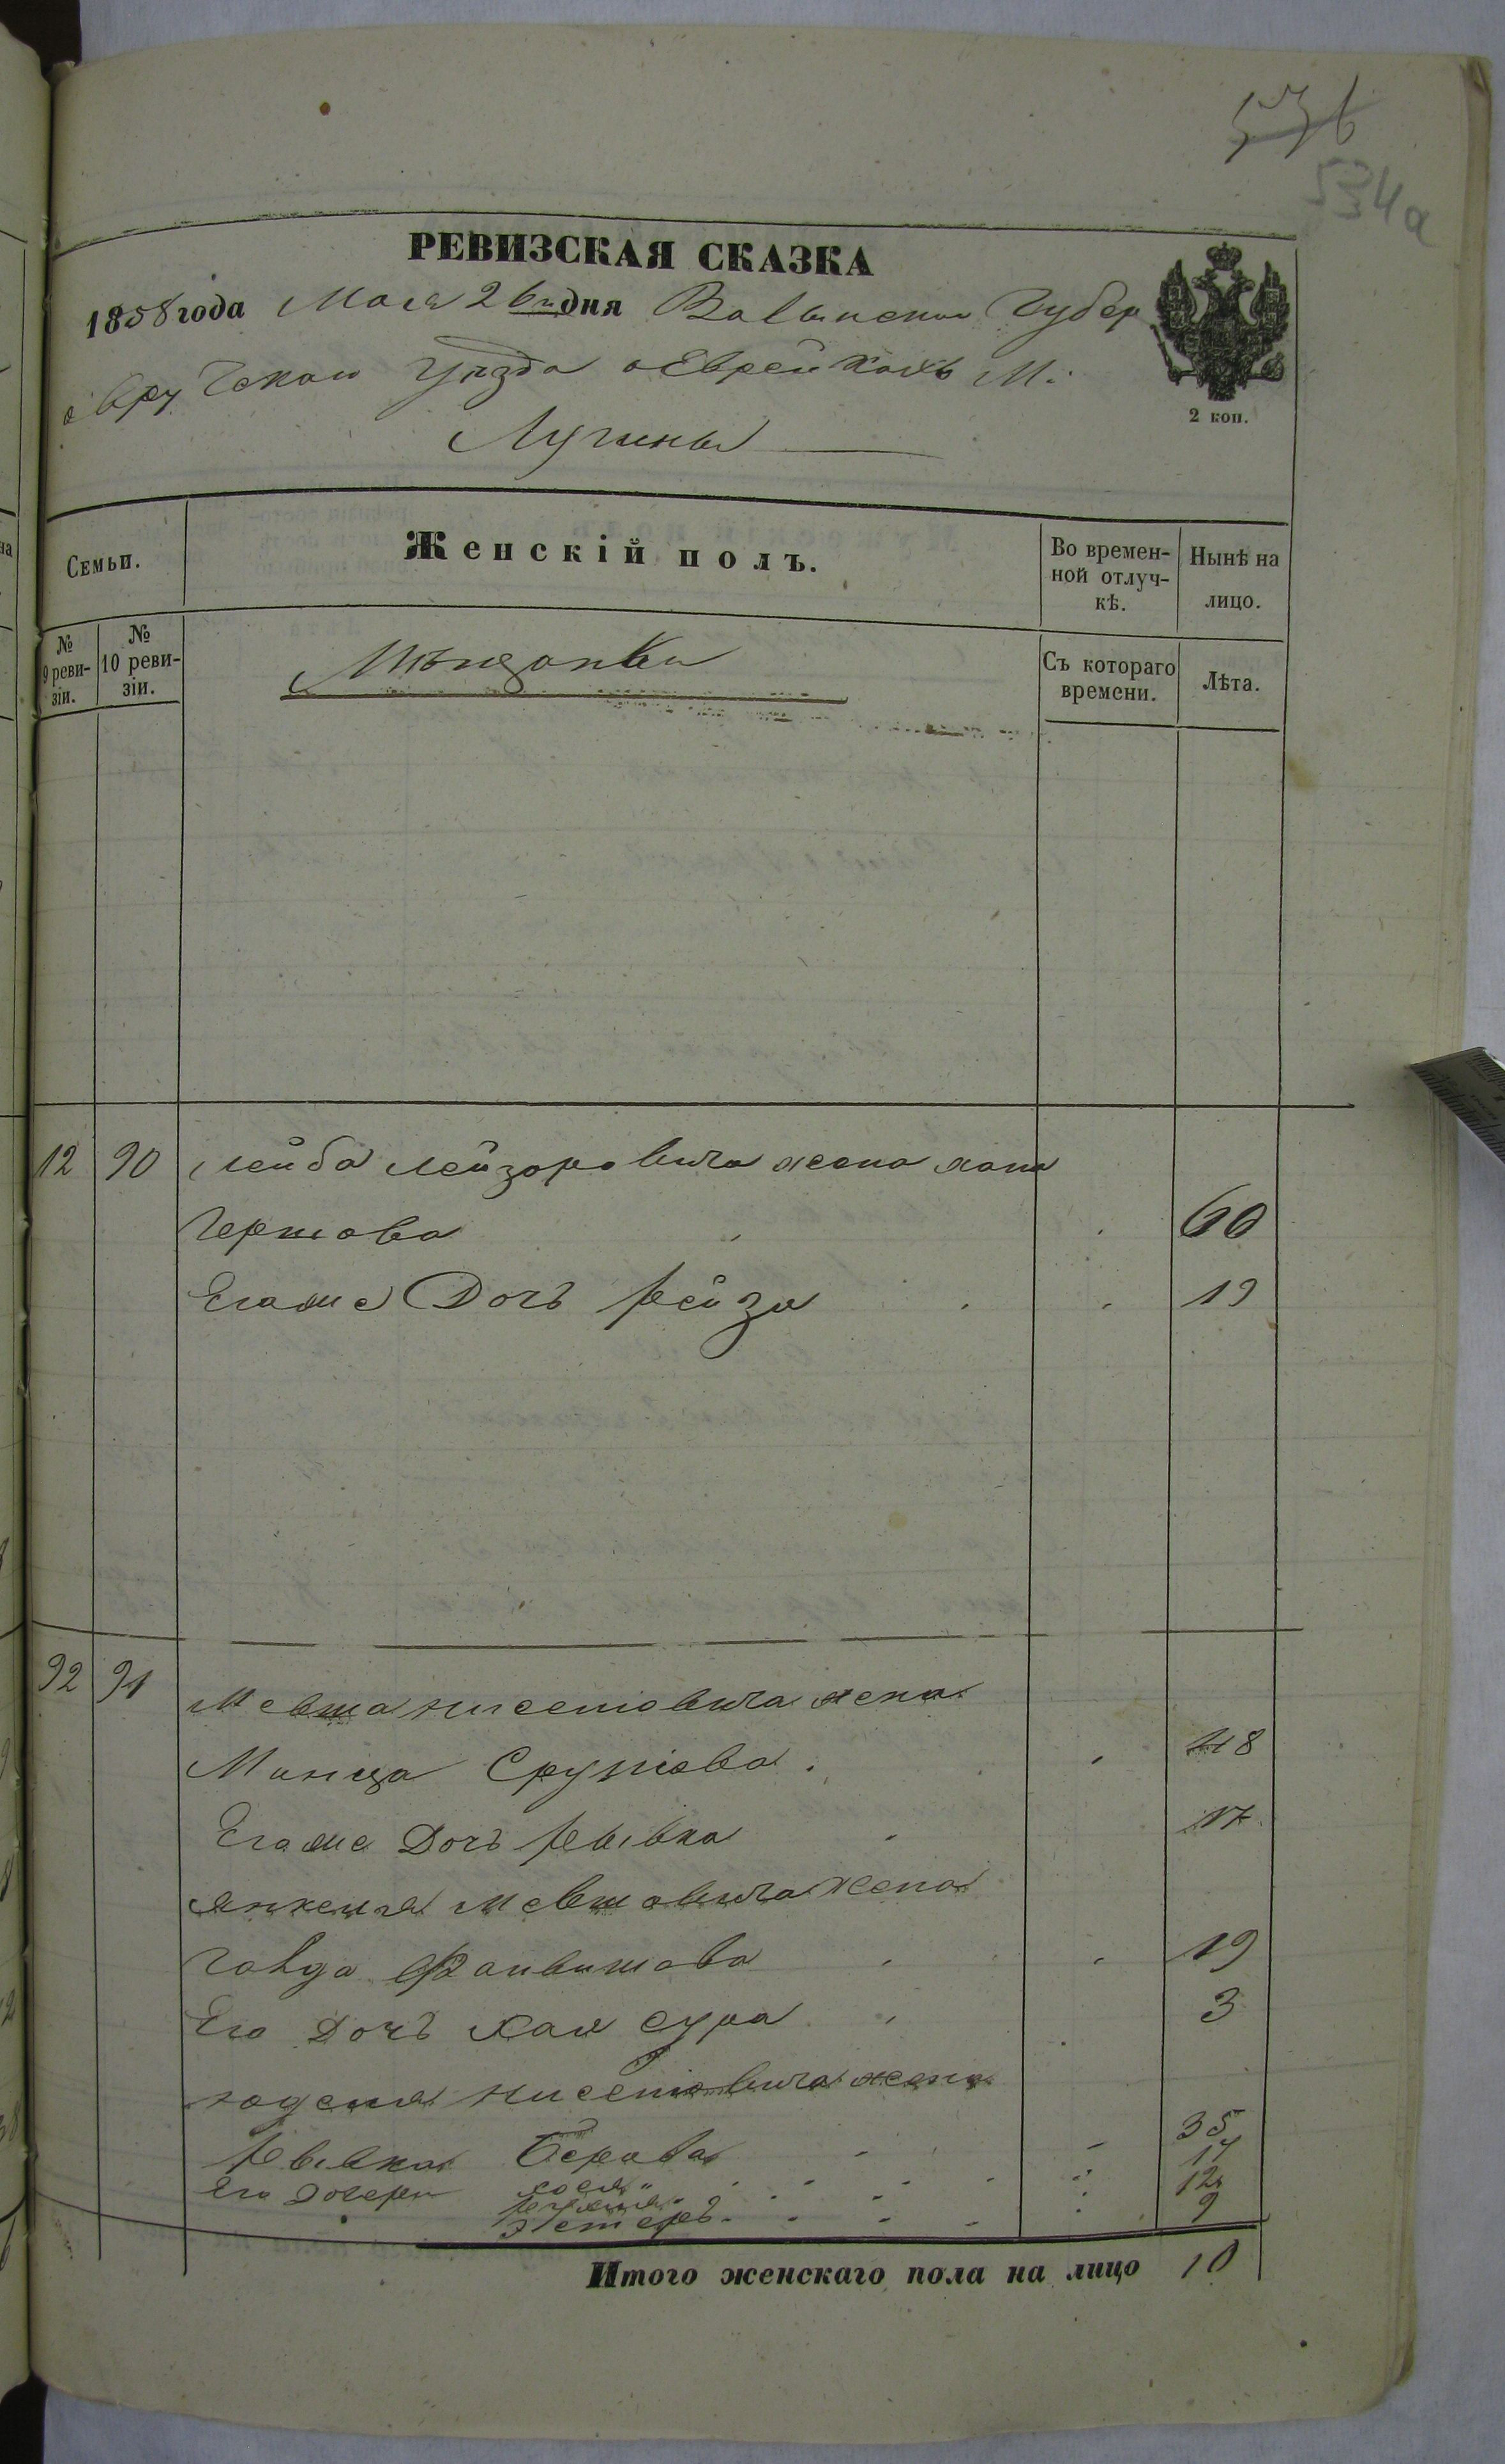 534а
РЕВИЗСКАЯ СКАЗКА
1858 года Мая 26 дня Волынской Губер
овручскаго уѣзда о Еврейкахъ М.
Лугины
2 коп.
Семьи.
Женскій полъ.
Во времен-
ной отлуч-
кѣ.
Нынѣ на
лицо.
№
9 реви-
зіи.
№
10 реви-
зіи.
Мѣщанки
Съ котораго
времени.
Лѣта.
12 90 Лейба Лейзоровича жена хана
Гершова 60
Егоже Дочь Рейза 19
92 91 Мевша Нисенговича жена
Манца Срулiова 48
Егоже Дочь Ривка 17
Янкеля Мевшовича жена
Файвишова 19
Его Дочь Хая сура 3
Нисенговича жена
Ривка Берова 35
Его дочери 17
12
Эстеръ 9
Итого женскаго пола на лицо 10